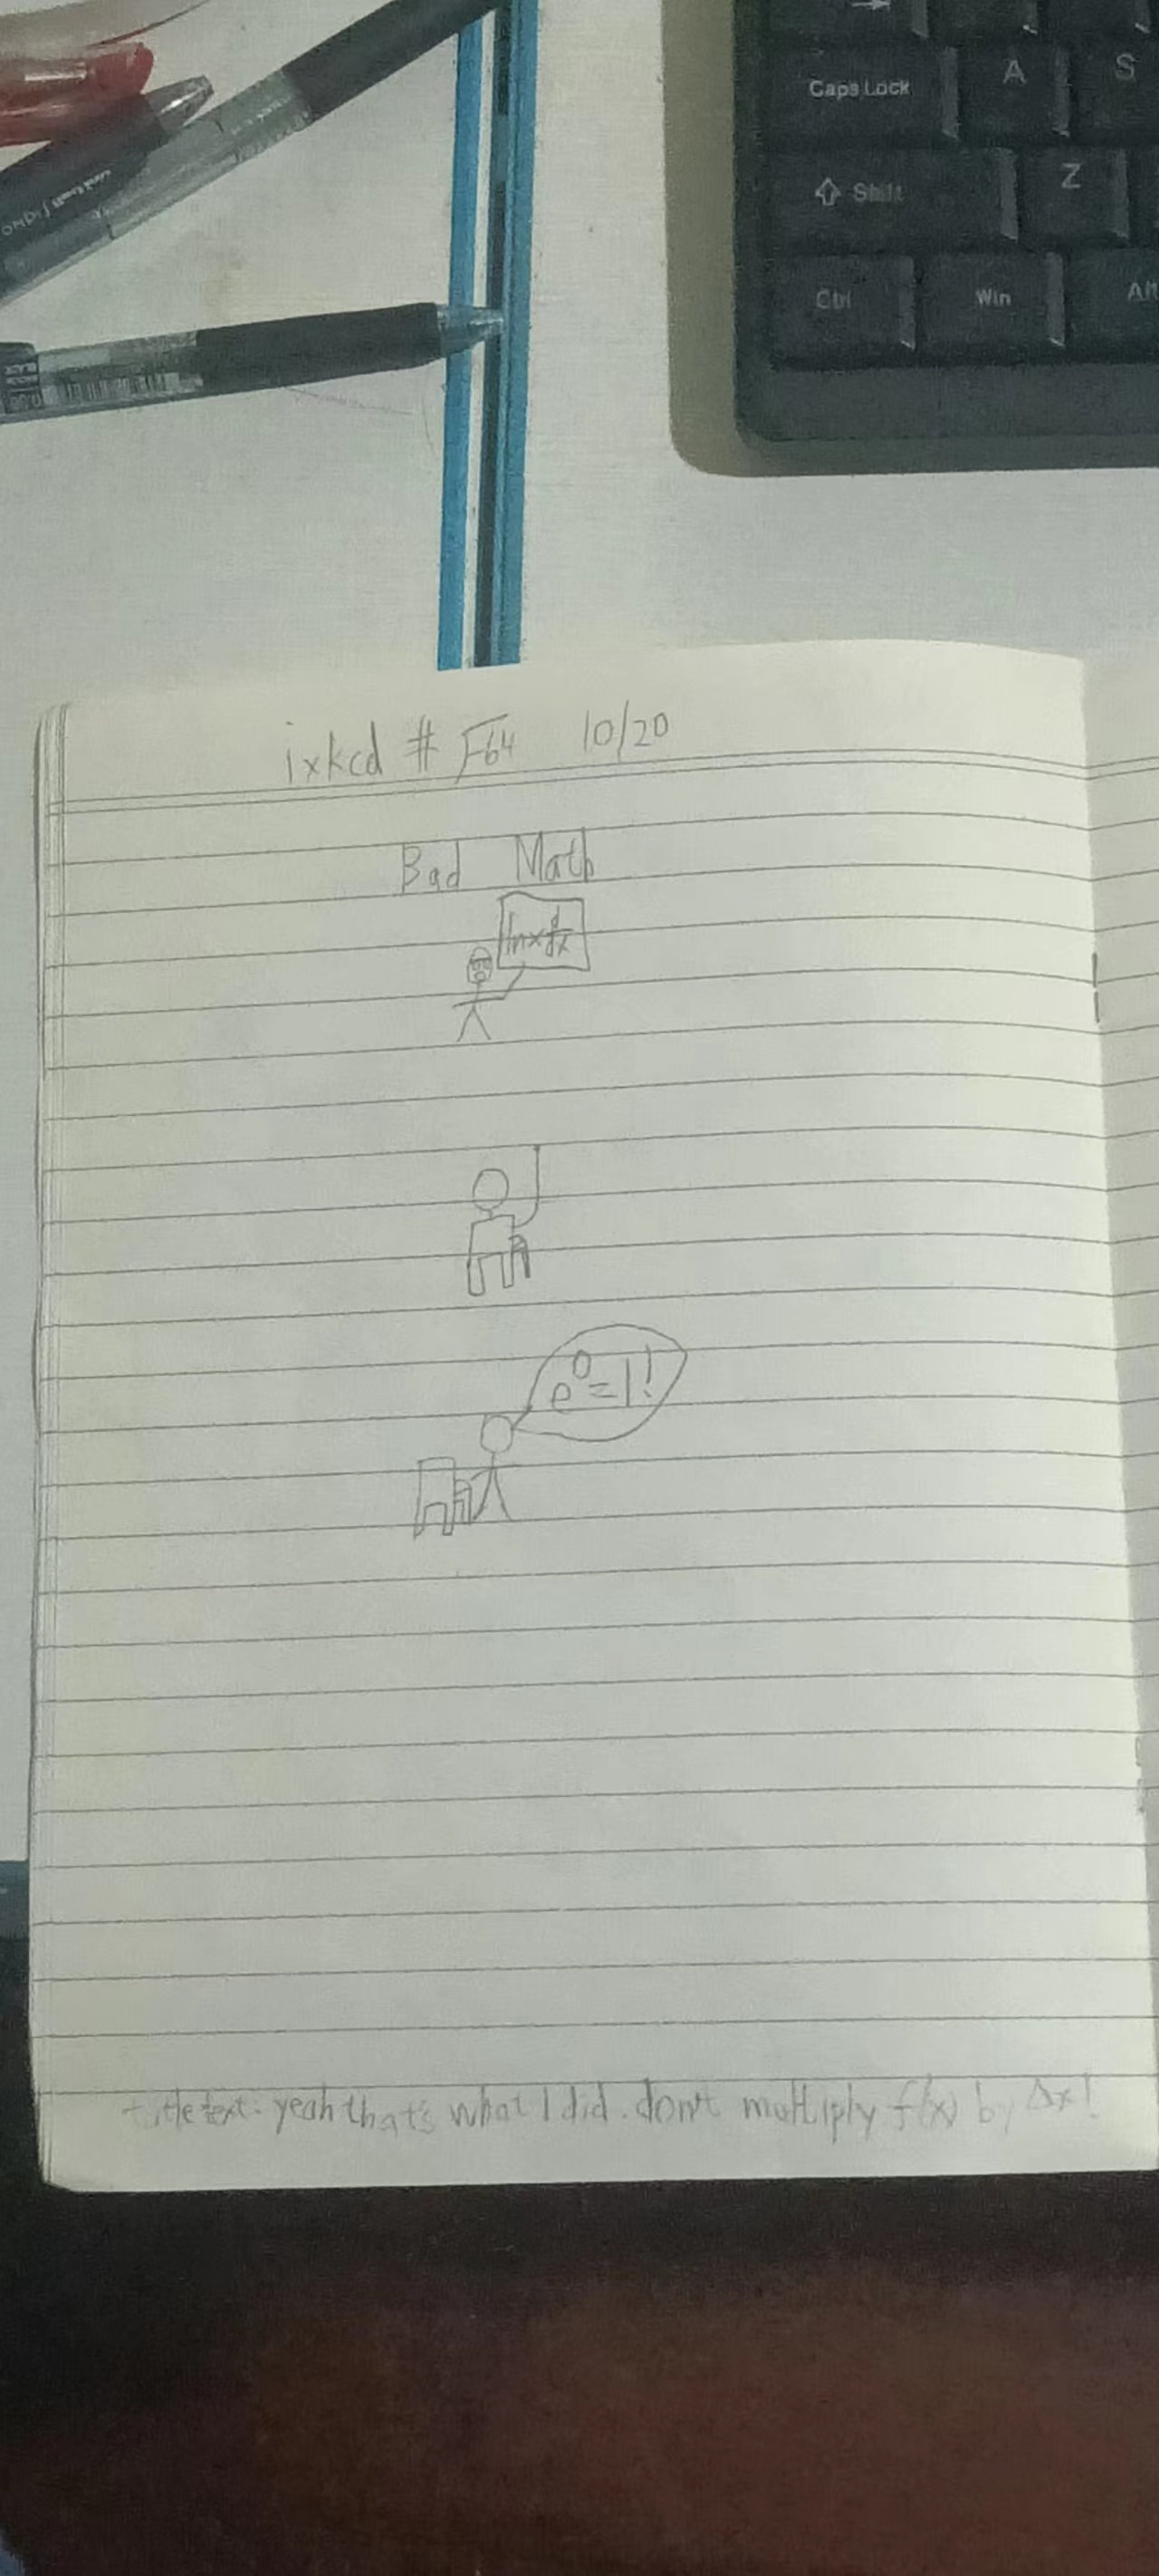 Caps Lock
A
S
Shift
Z
Ctrl
Win
Alt
ixkcd # F64 10/20
Bad Math
ln x d/dx
e⁰=1!
title text: yeah that's what I did. don't multiply f(x) by Δx!